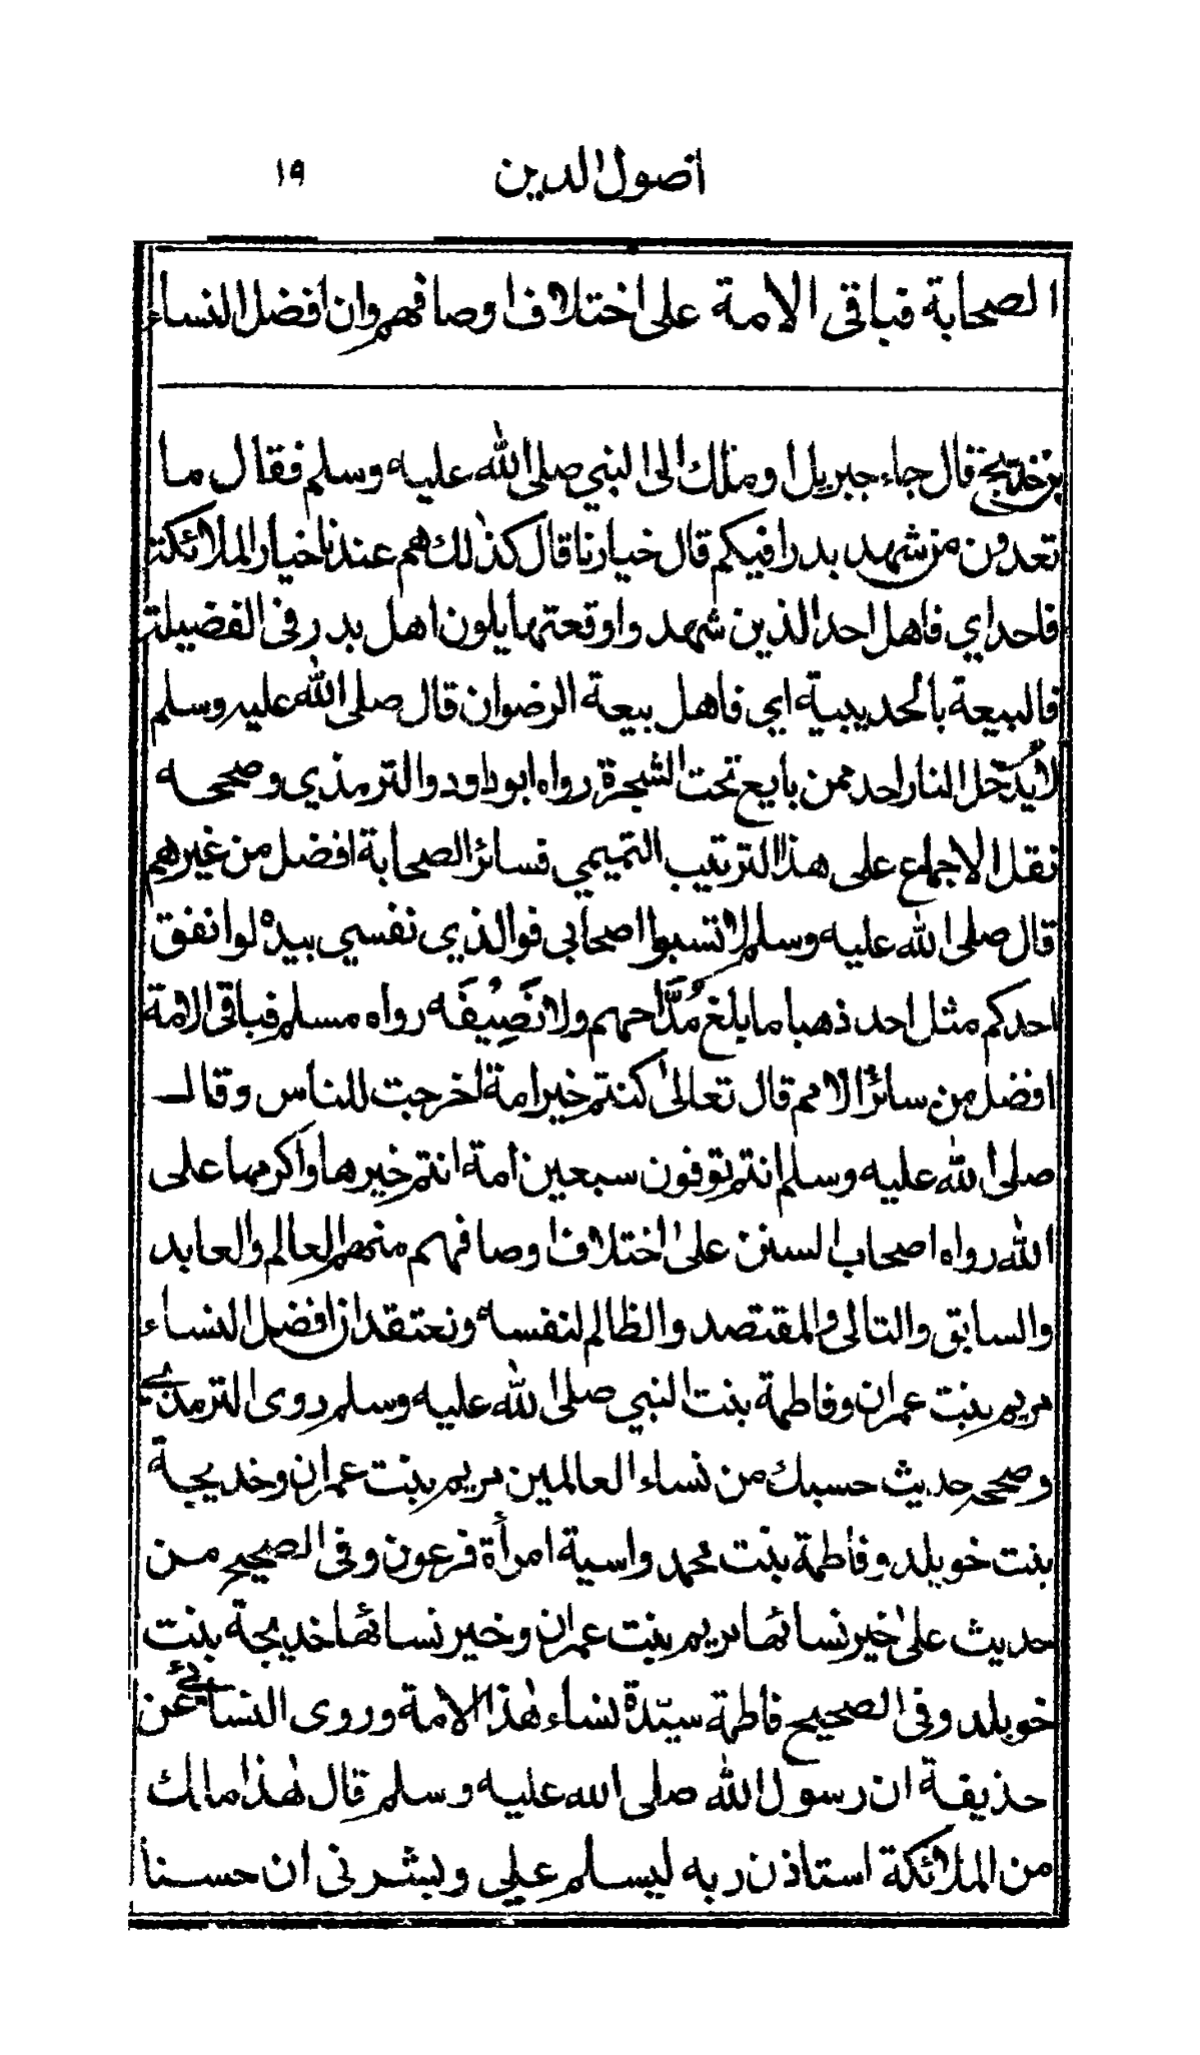 اصول الدين ١٩
الصحابة فباقي الامة على اختلاف اوصافهم وان افضل النساء
بن خديج قال جاء جبريل او ملك الى النبي صلى الله عليه وسلم فقال ما
تعدون من شهد بدرا فيكم قال خيارنا قال كذلك هم عندنا خيار الملائكة
فاحد اي فاهل احد الذين شهدوا وقعتها يلون اهل بدر في الفضيلة
فالبيعة بالحديبية اي فاهل بيعة الرضوان قال صلى الله عليه وسلم
لا يدخل النار احد ممن بايع تحت الشجرة رواه ابوداود والترمذي وصححه
نقل الاجماع على هذا الترتيب التميمي فسائر الصحابة افضل من غيرهم
قال صلى الله عليه وسلم لا تسبوا اصحابي فوالذي نفسي بيده لو انفق
احدكم مثل احد ذهبا ما بلغ مُدَّ احدهم ولا نَصِيْفَه رواه مسلم فباقي الامة
افضل من سائر الامم قال تعالى كنتم خير امة اخرجت للناس وقال
صلى الله عليه وسلم انتم توفون سبعين امة انتم خيرها واكرمها على
الله رواه اصحاب السنن على اختلاف اوصافهم منهم العالم والعابد
والسابق والتالى والمقتصد والظالم لنفسه ونعتقد ان افضل النساء
مريم بنت عمران وفاطمة بنت النبي صلى الله عليه وسلم روى الترمذي
وصححه حديث حسبك من نساء العالمين مريم بنت عمران وخديجة
بنت خويلد وفاطمة بنت محمد واسية امرأة فرعون وفى الصحيح من
حديث على خير نسائها مريم بنت عمران وخير نسائها خديجة بنت
خويلد وفى الصحيح فاطمة سيّدة نساء هذا الامة وروى النسائي عن
حذيفة ان رسول الله صلى الله عليه وسلم قال هذا مالك
من الملائكة استاذن ربه ليسلم علي وبشرني ان حسنا